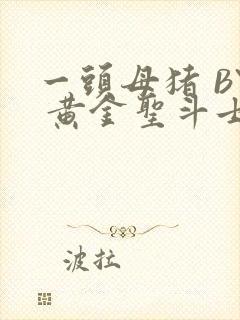 一頭母猪 BY
黄金聖斗士
波拉